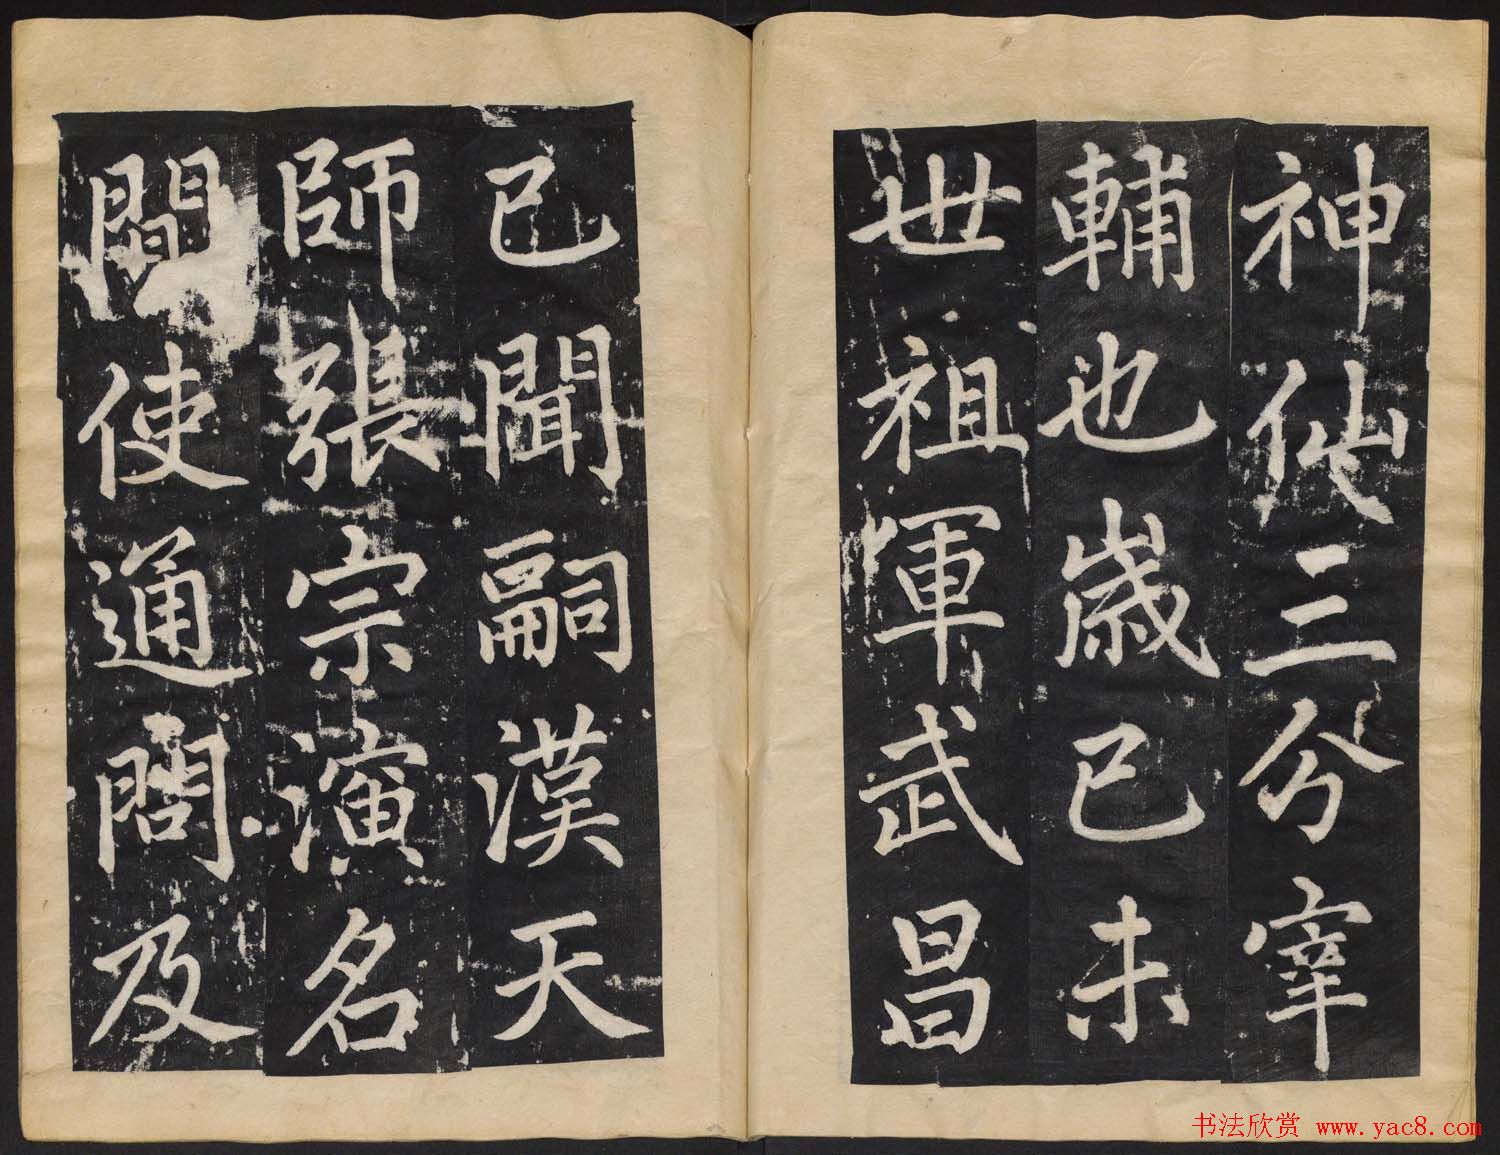 神仙三分宰
輔也歲己未
世祖軍武昌
已聞嗣漢天
師張宗演名
間使通問及
书法欣赏 www.yac8.com